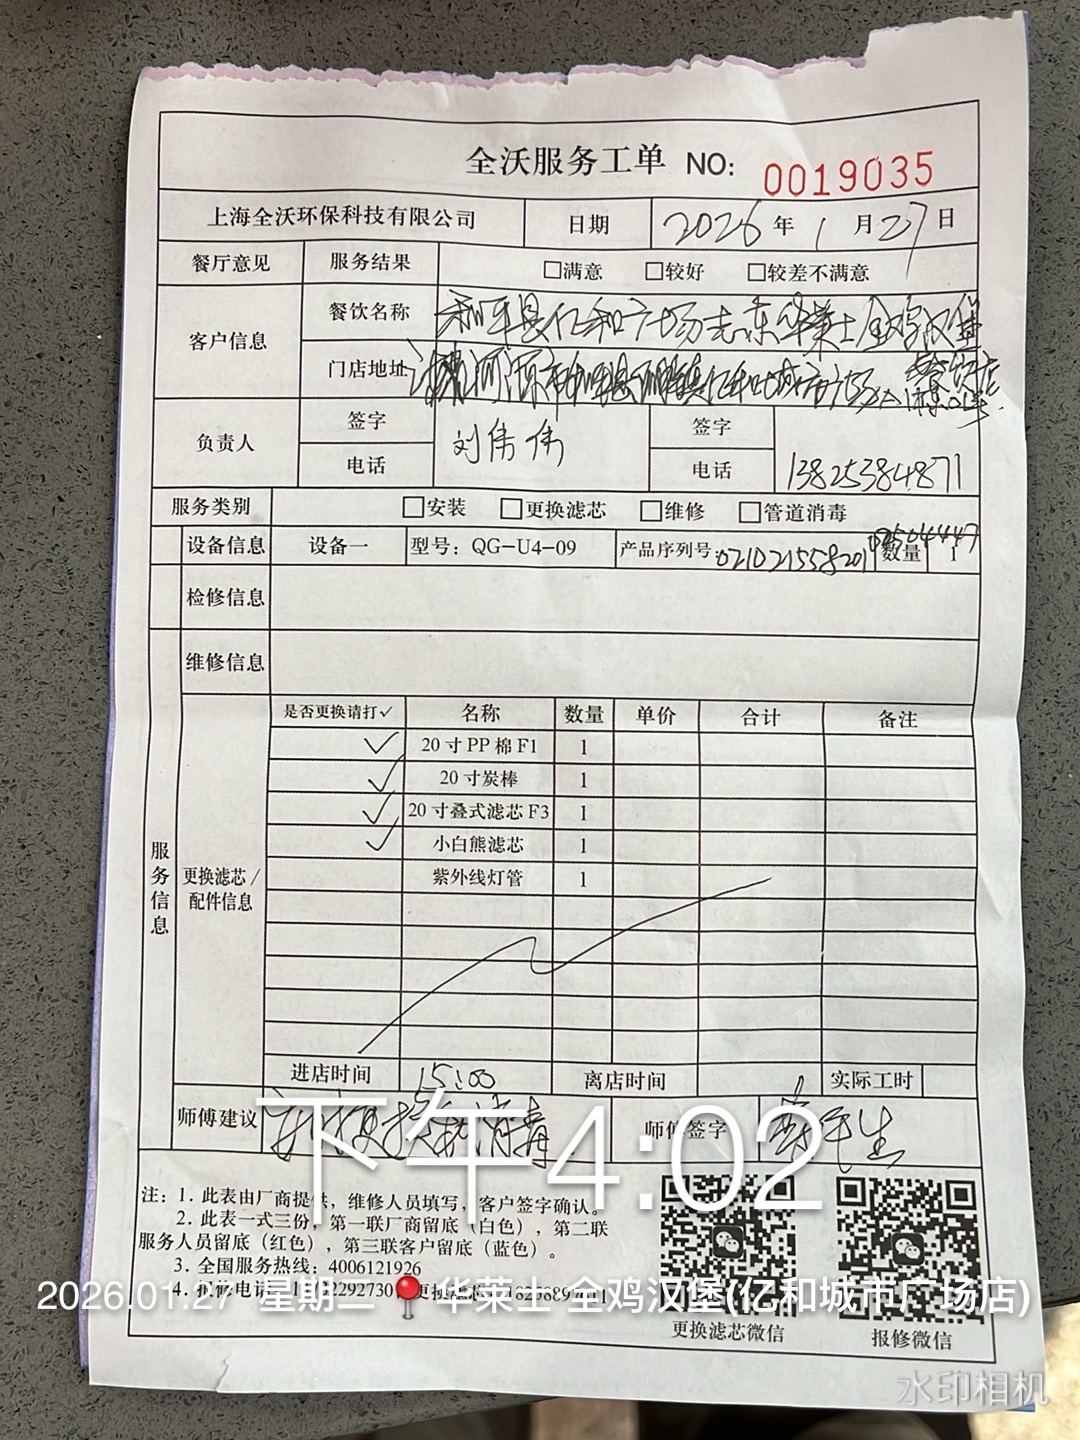 全沃服务工单 NO: 0019035
上海全沃环保科技有限公司 日期 2026年1月27日
餐厅意见 服务结果 □满意 □较好 □较差不满意
客户信息 餐饮名称 和平县亿和广场志东华莱士全鸡汉堡
餐饮店
门店地址 河源市和平县阳明镇亿和城市广场
负责人 签字 刘伟伟 签字
电话 电话 13825384871
服务类别 □安装 □更换滤芯 □维修 □管道消毒
设备信息 设备一 型号：QG-U4-09 产品序列号：021021558201 数量 1
检修信息
维修信息
服务信息
更换滤芯/配件信息
是否更换请打✓ 名称 数量 单价 合计 备注
✓ 20寸PP棉F1 1
✓ 20寸炭棒 1
✓ 20寸叠式滤芯F3 1
✓ 小白熊滤芯 1
紫外线灯管 1
进店时间 15:00 离店时间 实际工时
师傅建议 消毒 师傅签字
下午4:02
注：1. 此表由厂商提供，维修人员填写，客户签字确认。
2. 此表一式三份，第一联厂商留底（白色），第二联
服务人员留底（红色），第三联客户留底（蓝色）。
3. 全国服务热线：4006121926
4. 报修电话
2026.01.27 星期二 华莱士·全鸡汉堡(亿和城市广场店)
更换滤芯微信 报修微信
水印相机